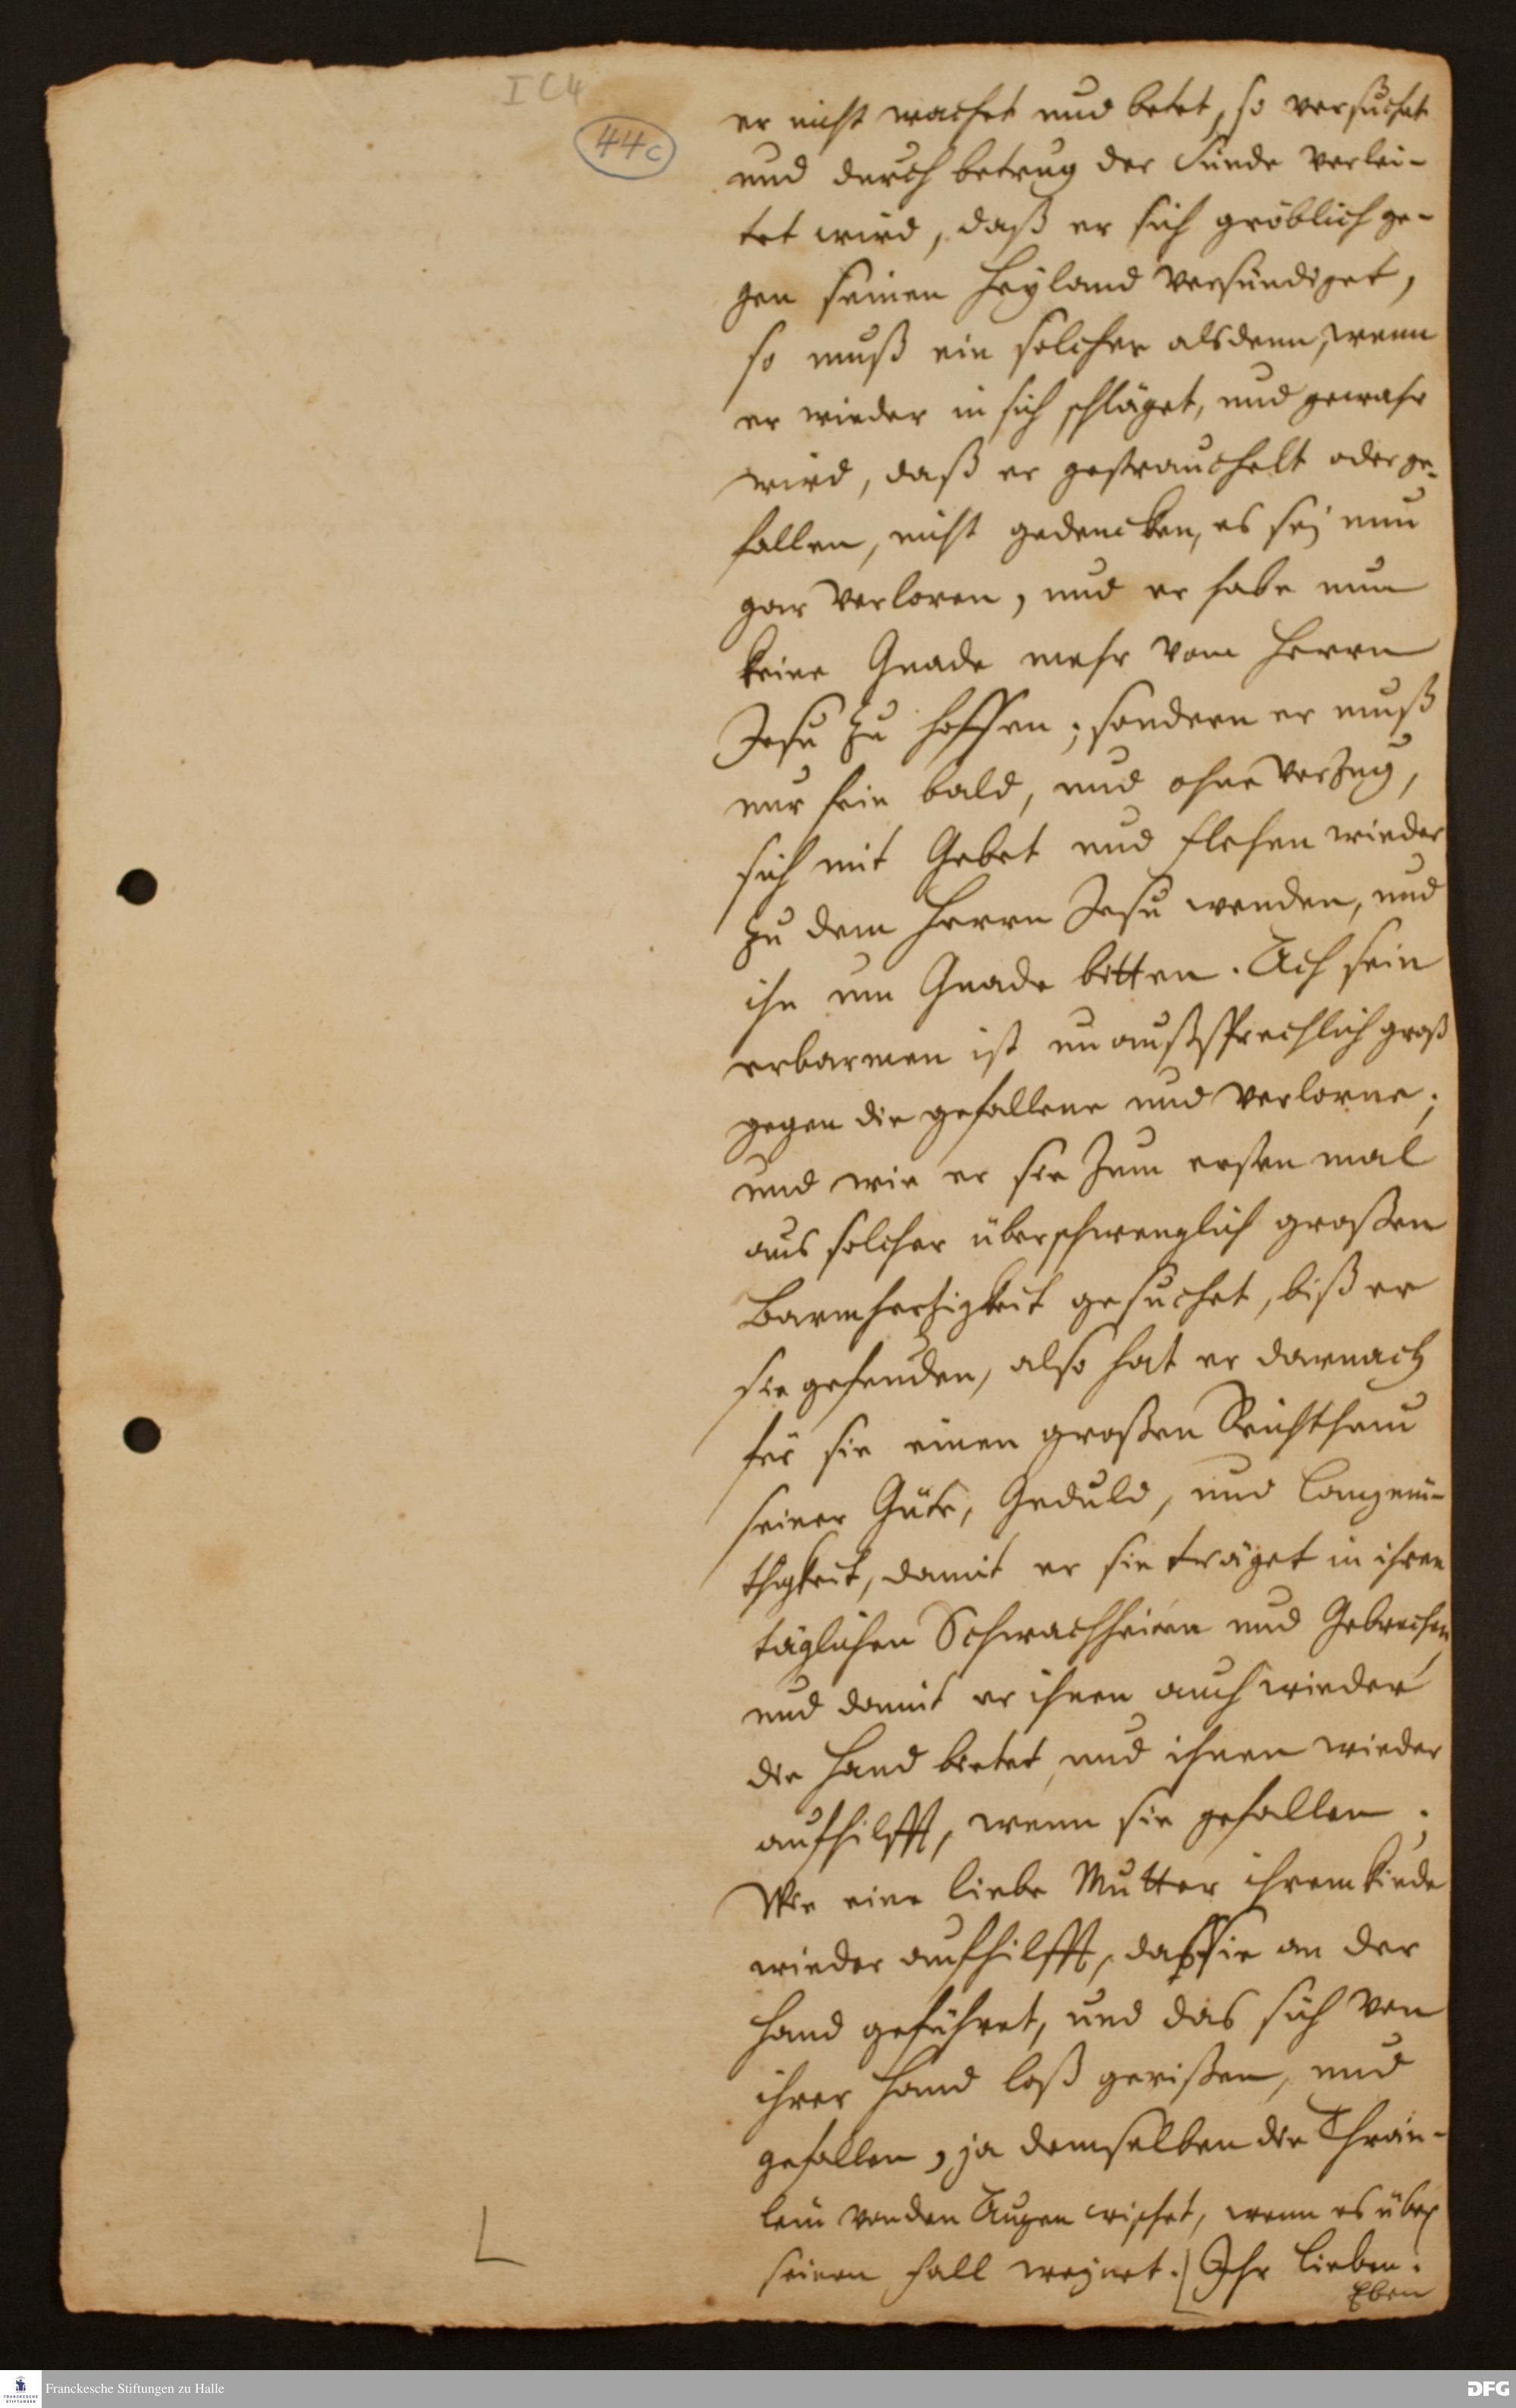 I C 4
44c
er nicht wachet und betet, so versuchet
und durch betrug der Sünde verlei-
tet wird, daß er sich gröblich ge-
gen seinen Heyland versündiget,
so muß ein solcher alsdenn, wenn
er wieder in sich schläget, und gewahr
wird, daß er gestrauchelt oder ge-
fallen, nicht gedencken, es sej nun
gar verloren, und er habe nun
keine Gnade mehr vom Herrn
Jesu zu hoffen; sondern er muß
nur fein bald, und ohne Verzug,
sich mit Gebet und flehen wieder
zu dem Herrn Jesu wenden, und
ihn um Gnade bitten. Ach sein
erbarmen ist unaußsprechlich groß
gegen die gefallene und verlorne;
und wie er sie zum ersten mal
aus solcher überschwenglich großen
Barmhertzigkeit gesuchet, biß er
sie gefunden, also hat er darnach
für sie einen großen Reichthum
seiner Güte, Geduld, und Langmü-
thigkeit, damit er sie träget in ihren
täglichen Schwachheiten und Gebrechen,
und damit er ihnen auch wieder
die Hand bietet, und ihnen wieder
aufhilfft, wenn sie gefallen;
Wie eine liebe Mutter ihrem Kinde
wieder aufhilfft, das sie an der
Hand geführet, und das sich von
ihrer Hand loß gerißen, und
gefallen, ja demselben die Thrän-
lein von den Augen wischet, wenn es über
seinen Fall weynet. Ihr Lieben.
Eben
Franckesche Stiftungen zu Halle
FRANCKESCHE STIFTUNGEN
DFG